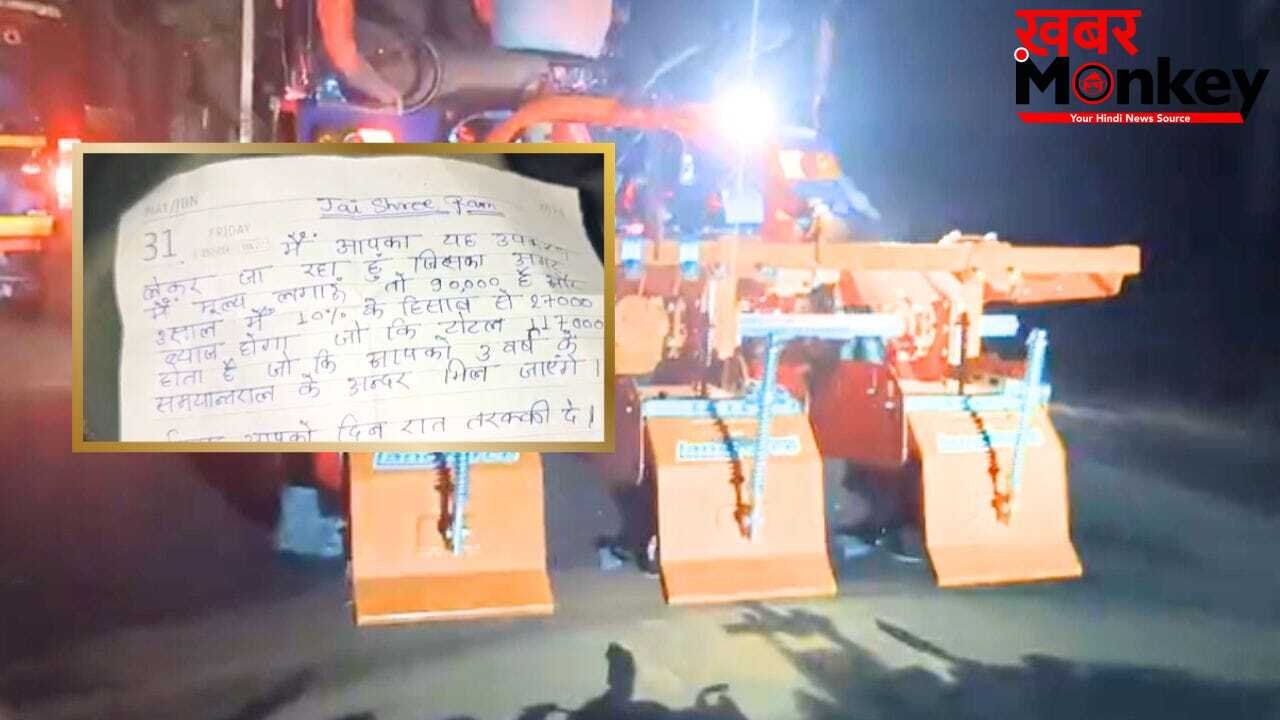 ख़बर
Monkey
Your Hindi News Source
MAY/JUN
Jai Shree Ram
31
FRIDAY
मैं आपका यह उपकरण
लेकर जा रहा हूँ जिसका अगर
मैं मूल्य लगाऊँ तो 90,000 है और
3साल में 10% के हिसाब से 27000
ब्याज होगा जो कि टोटल 117000
होता है जो कि आपको 3 वर्ष के
समयान्तराल के अन्दर मिल जाएंगे ।
आपको दिन रात तरक्की दे ।